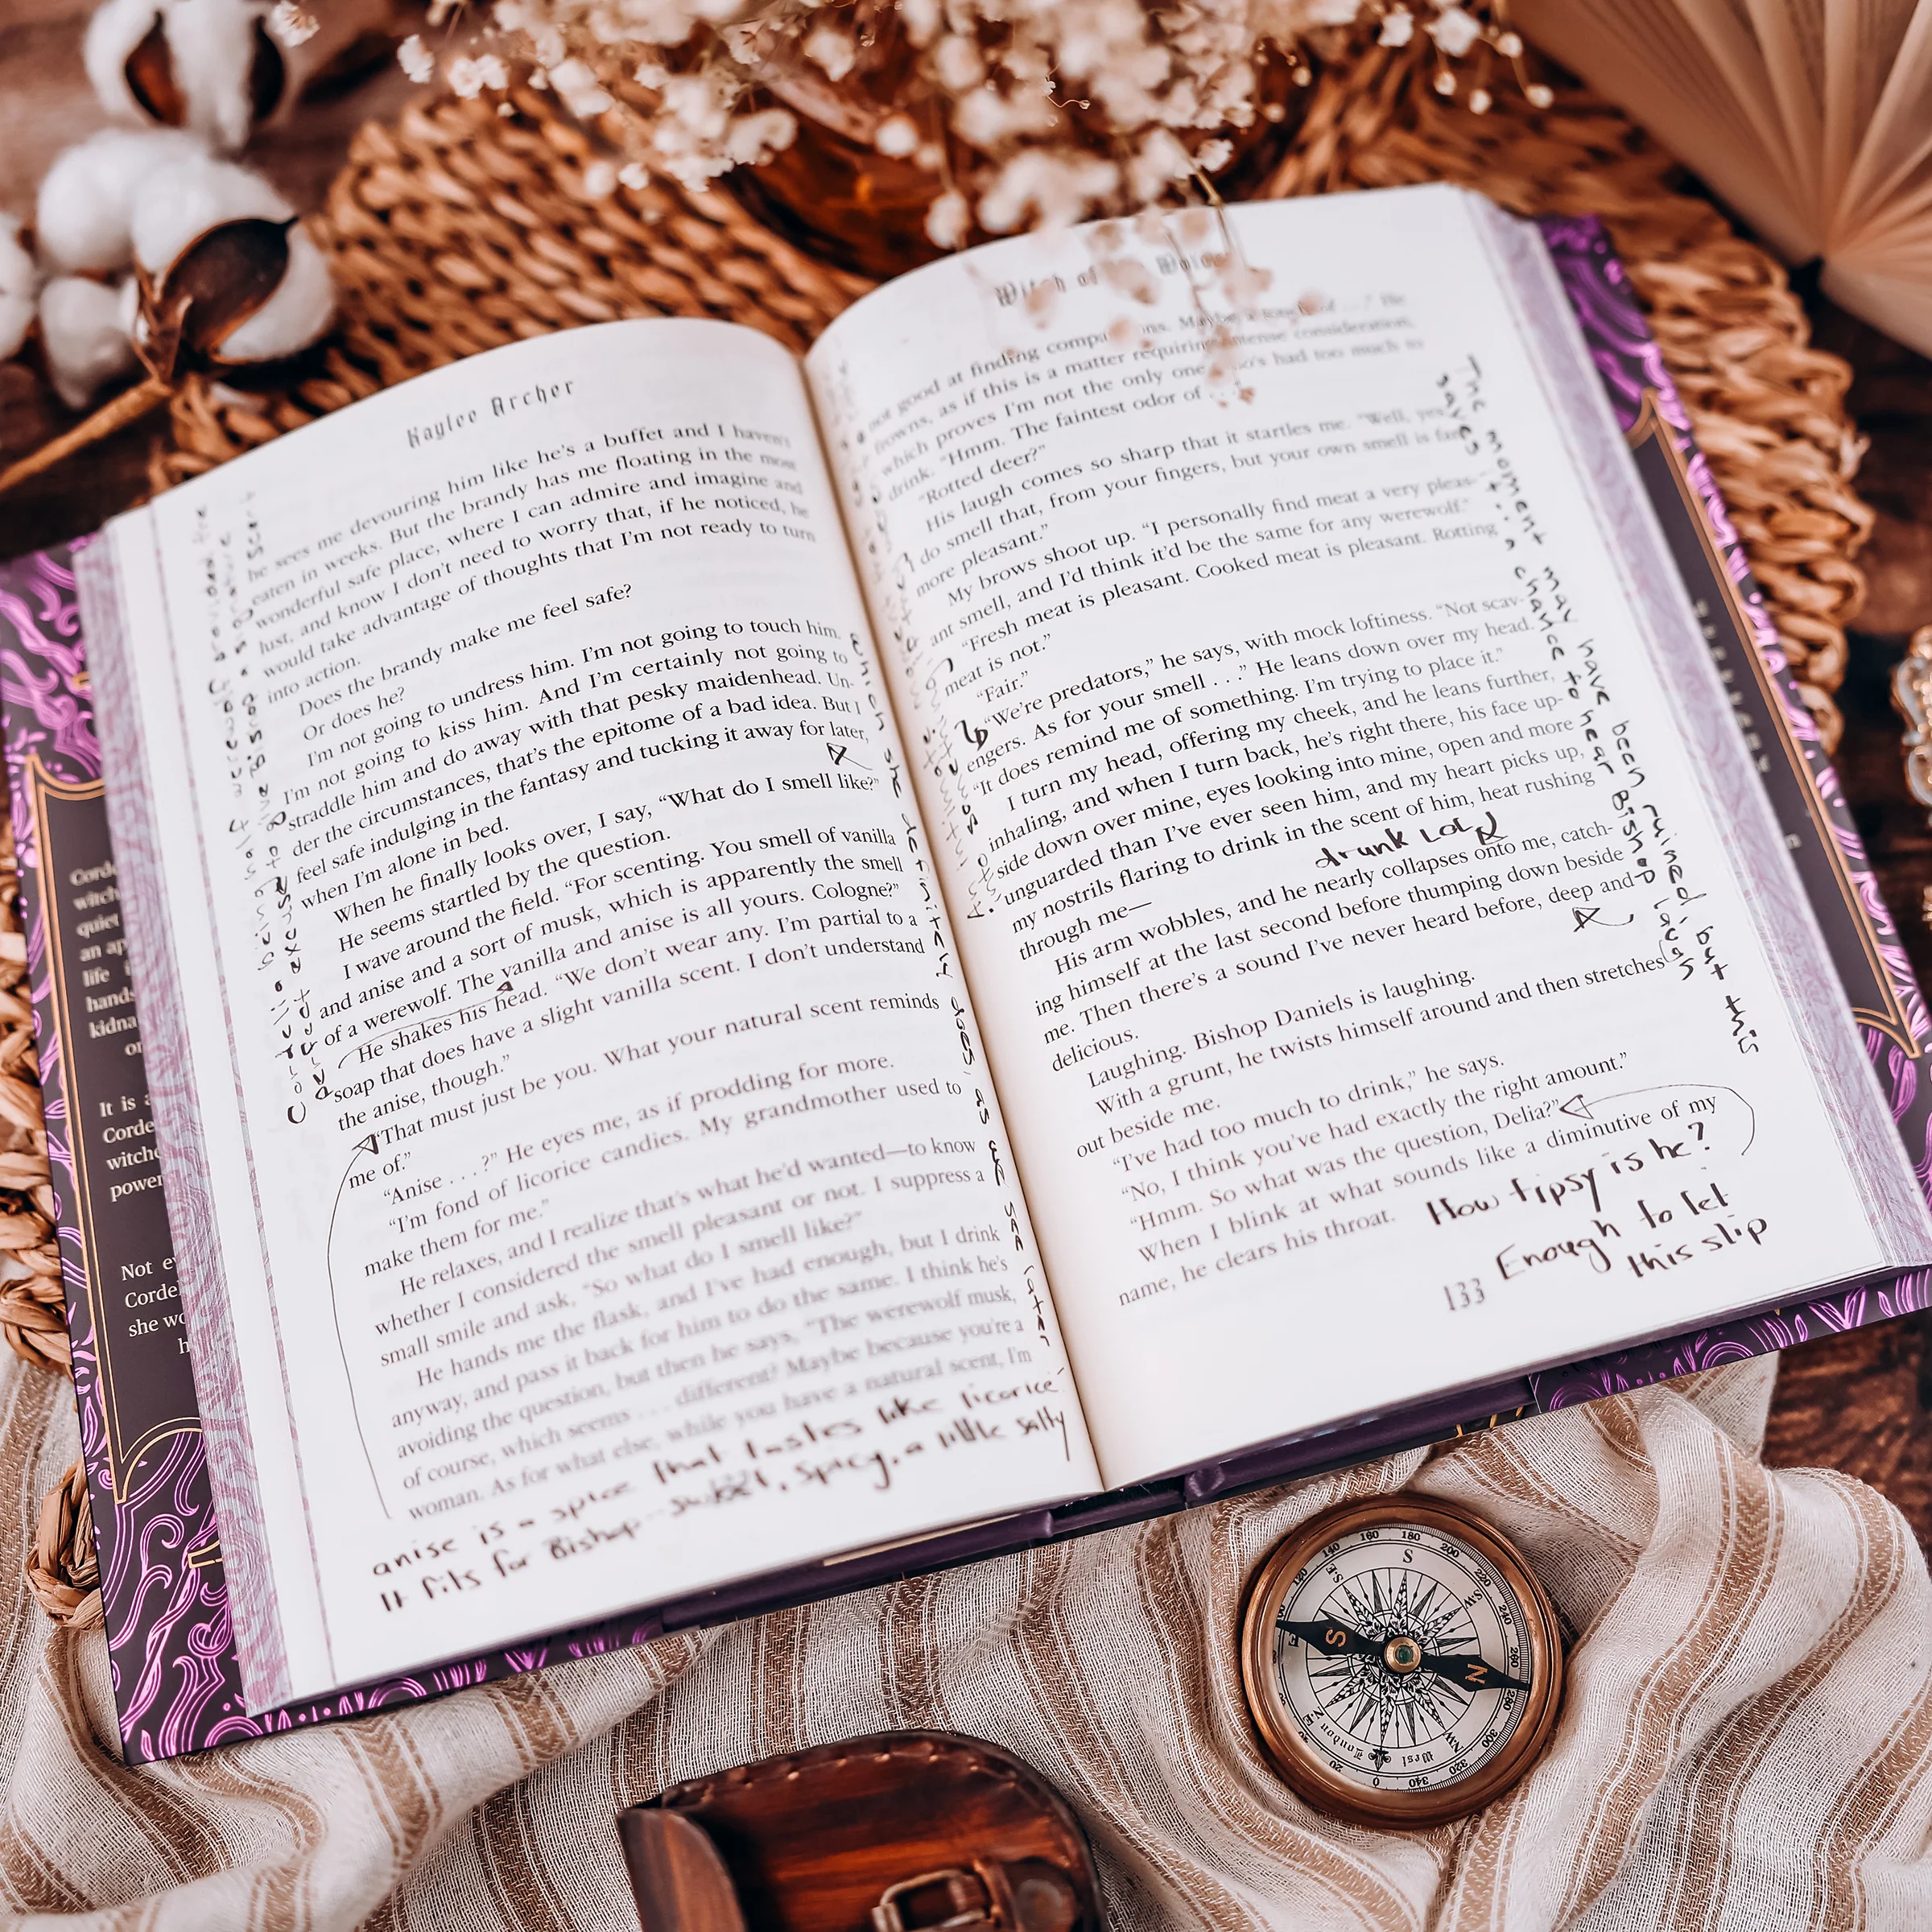 Kaylee Archer
he sees me devouring him like he's a buffet and I haven't
eaten in weeks. But the brandy has me floating in the most
wonderful safe place, where I can admire and imagine and
lust, and know I don't need to worry that, if he noticed, he
would take advantage of thoughts that I'm not ready to turn
into action.
Does the brandy make me feel safe?
Or does he?
I'm not going to undress him. I'm not going to touch him.
I'm not going to kiss him. And I'm certainly not going to
straddle him and do away with that pesky maidenhead. Un-
der the circumstances, that's the epitome of a bad idea. But I
feel safe indulging in the fantasy and tucking it away for later,
when I'm alone in bed.
When he finally looks over, I say, “What do I smell like?”
He seems startled by the question.
I wave around the field. “For scenting. You smell of vanilla
and anise and a sort of musk, which is apparently the smell
of a werewolf. The vanilla and anise is all yours. Cologne?”
He shakes his head. “We don't wear any. I'm partial to a
soap that does have a slight vanilla scent. I don't understand
the anise, though.”
“That must just be you. What your natural scent reminds
me of.”
“Anise . . .?” He eyes me, as if prodding for more.
“I'm fond of licorice candies. My grandmother used to
make them for me.”
He relaxes, and I realize that's what he'd wanted—to know
whether I considered the smell pleasant or not. I suppress a
small smile and ask, “So what do I smell like?”
He hands me the flask, and I've had enough, but I drink
anyway, and pass it back for him to do the same. I think he's
avoiding the question, but then he says, “The werewolf musk,
of course, which seems . . . different? Maybe because you're a
woman. As for what else, while you have a natural scent, I'm
which she definitely does, as we see later
anise is a spice that tastes like licorice
It fits for Bishop-- sweet, spicy, a little salty
Witch of
not good at finding
frowns, as if this is a matter requiring intense consideration,
which proves I'm not the only one who's had too much to
drink. “Hmm. The faintest odor of . . .”
“Rotted deer?”
His laugh comes so sharp that it startles me. “Well, yes,
do smell that, from your fingers, but your own smell is far
more pleasant.”
My brows shoot up. “I personally find meat a very pleas-
ant smell, and I'd think it'd be the same for any werewolf.”
“Fresh meat is pleasant. Cooked meat is pleasant. Rotting
meat is not.”
“Fair.”
“We're predators,” he says, with mock loftiness. “Not scav-
engers. As for your smell . . .” He leans down over my head.
“It does remind me of something. I'm trying to place it.”
I turn my head, offering my cheek, and he leans further,
inhaling, and when I turn back, he's right there, his face up-
side down over mine, eyes looking into mine, open and more
unguarded than I've ever seen him, and my heart picks up,
my nostrils flaring to drink in the scent of him, heat rushing
through me—
drunk LOL
His arm wobbles, and he nearly collapses onto me, catch-
ing himself at the last second before thumping down beside
me. Then there's a sound I've never heard before, deep and
delicious.
Laughing. Bishop Daniels is laughing.
With a grunt, he twists himself around and then stretches
out beside me.
“I've had too much to drink,” he says.
“No, I think you've had exactly the right amount.”
“Hmm. So what was the question, Delia?”
When I blink at what sounds like a diminutive of my
name, he clears his throat.
How tipsy is he?
Enough to let
this slip
133
The moment may have been ruined, but this
saves it: a chance to hear Bishop laugh
Corde
witch
quiet
an ap
life
hands
kidna
or
It is
Corde
witche
power
Not ev
Corde
she wo
h
S
160
180
200
140
220
120
240
SE
SW
260
E
S
N
280
300
NE
NW
320
340
0
20
London
West